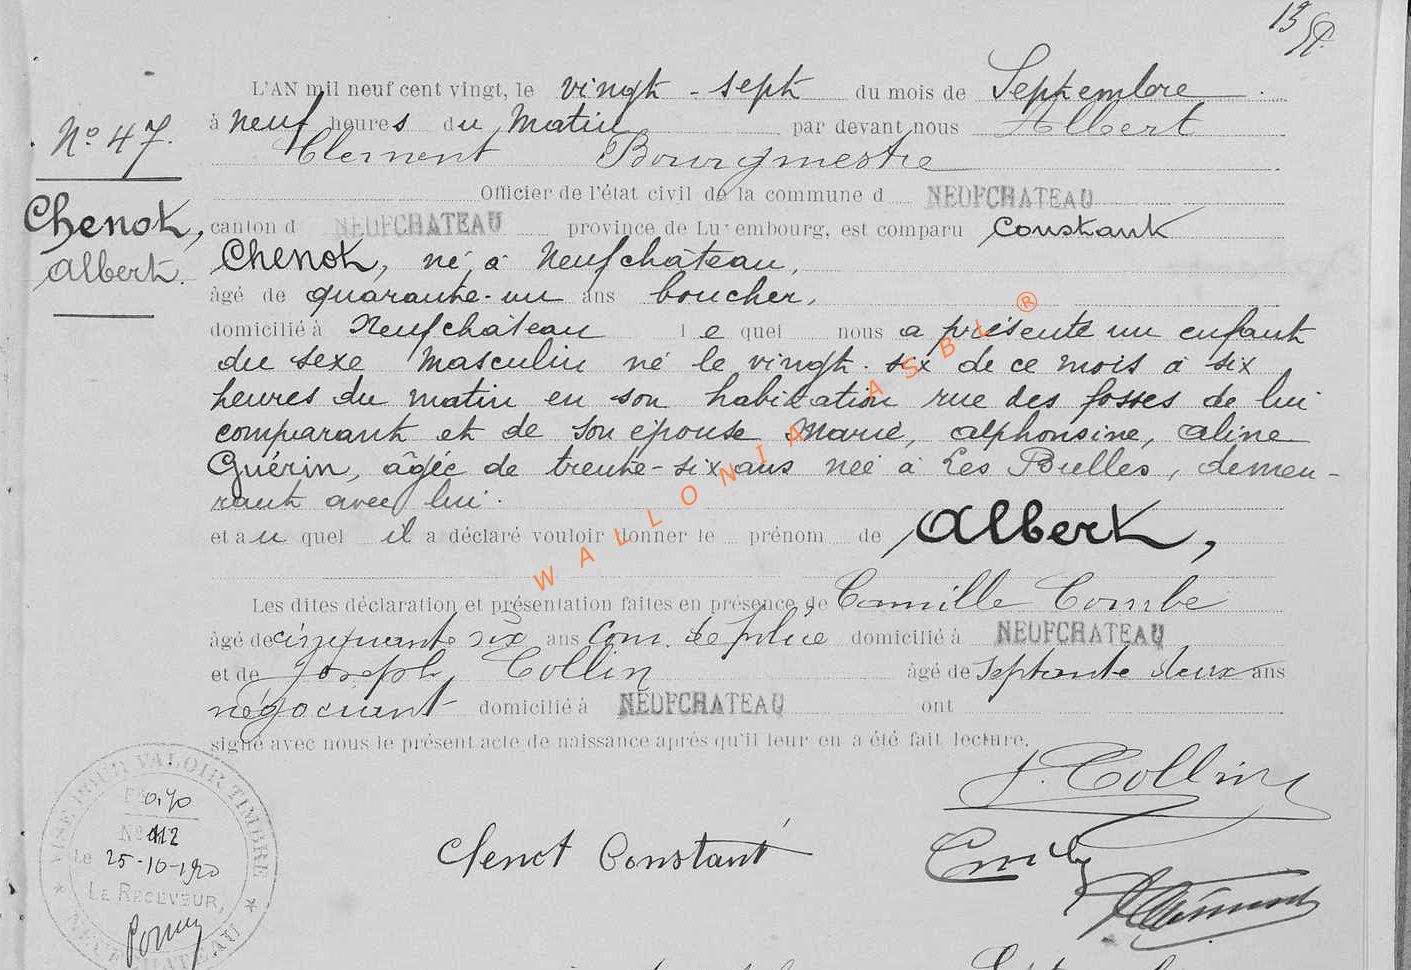 13
L'AN mil neuf cent vingt, le vingt-sept du mois de Septembre
à neuf heures du Matin par devant nous Albert
Clement Bourgmestre
Officier de l'état civil de la commune d NEUFCHATEAU
canton d NEUFCHATEAU province de Luxembourg, est comparu Constant
Chenot, né à Neufchâteau,
âgé de quarante-un ans boucher,
domicilié à Neufchâteau lequel nous a présenté un enfant
du sexe Masculin né le vingt-six de ce mois à six
heures du matin en son habitation rue des fosses de lui
comparant et de son épouse Marie, Alphonsine, Aline
Guérin, âgée de trente-six ans née à Les Bulles, demeu-
rant avec lui.
et au quel il a déclaré vouloir donner le prénom de Albert,
Les dites déclaration et présentation faites en présence de Camille Combe
âgé de cinquante six ans Com. de police domicilié à NEUFCHATEAU
et de Joseph Collin âgé de septante deux ans
négociant domicilié à NEUFCHATEAU ont
signé avec nous le présent acte de naissance après qu'il leur en a été fait lecture.
No 47.
Chenot,
Albert.
J. Collin
Chenot Constant
AClément
VISÉ POUR VALOIR TIMBRE
Fr. 0,70
No 112
Le 25-10-1920
LE RECEVEUR,
NEUFCHATEAU
WALLONIA ASBL ®